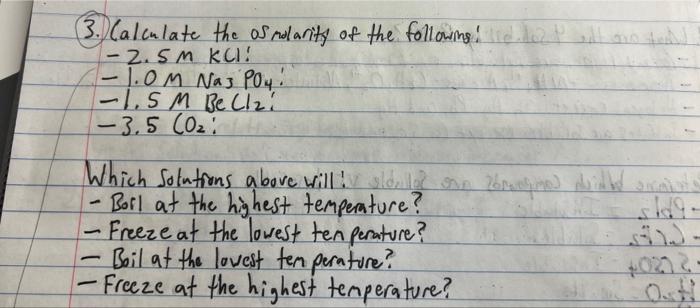 3. Calculate the osmolarity of the following:
- 2.5 M KCl:
- 1.0 M Na3 PO4:
- 1.5 M BeCl2:
- 3.5 CO2:
Which Solutions above will:
- Boil at the highest temperature?
- Freeze at the lowest temperature?
- Boil at the lowest temperature?
- Freeze at the highest temperature?